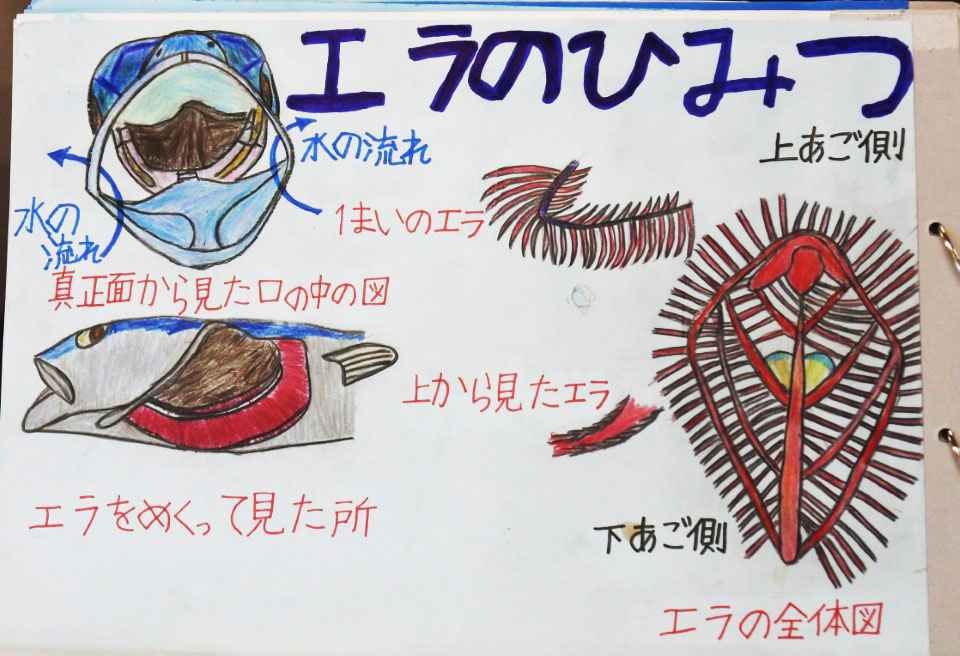 エラのひみつ
水の流れ
上あご側
水の
流れ
1まいのエラ
真正面から見た口の中の図
上から見たエラ
エラをめくって見た所
下あご側
エラの全体図